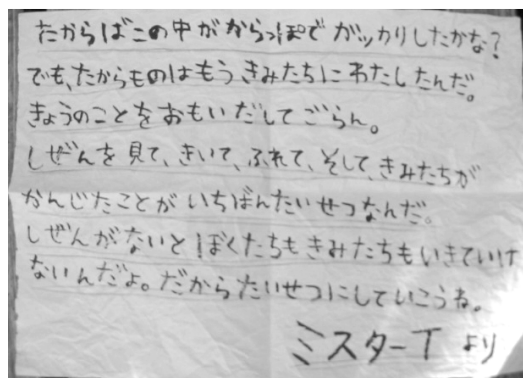 たからばこの中がからっぽで ガッカリしたかな?
でも、たからものはもう きみたちに わたしたんだ。
きょうのことを おもいだして ごらん。
しぜんを 見て、きいて、ふれて、そして、きみたちが
かんじたことが いちばんたいせつなんだ。
しぜんがないと ぼくたちも きみたちも いきていけ
ないんだよ。だから たいせつにしていこうね。
ミスターT より